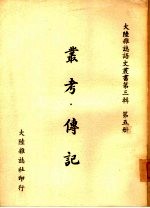 大陸雜誌語文叢書第三輯 第五册
叢考·傳記
大陸雜誌社印行